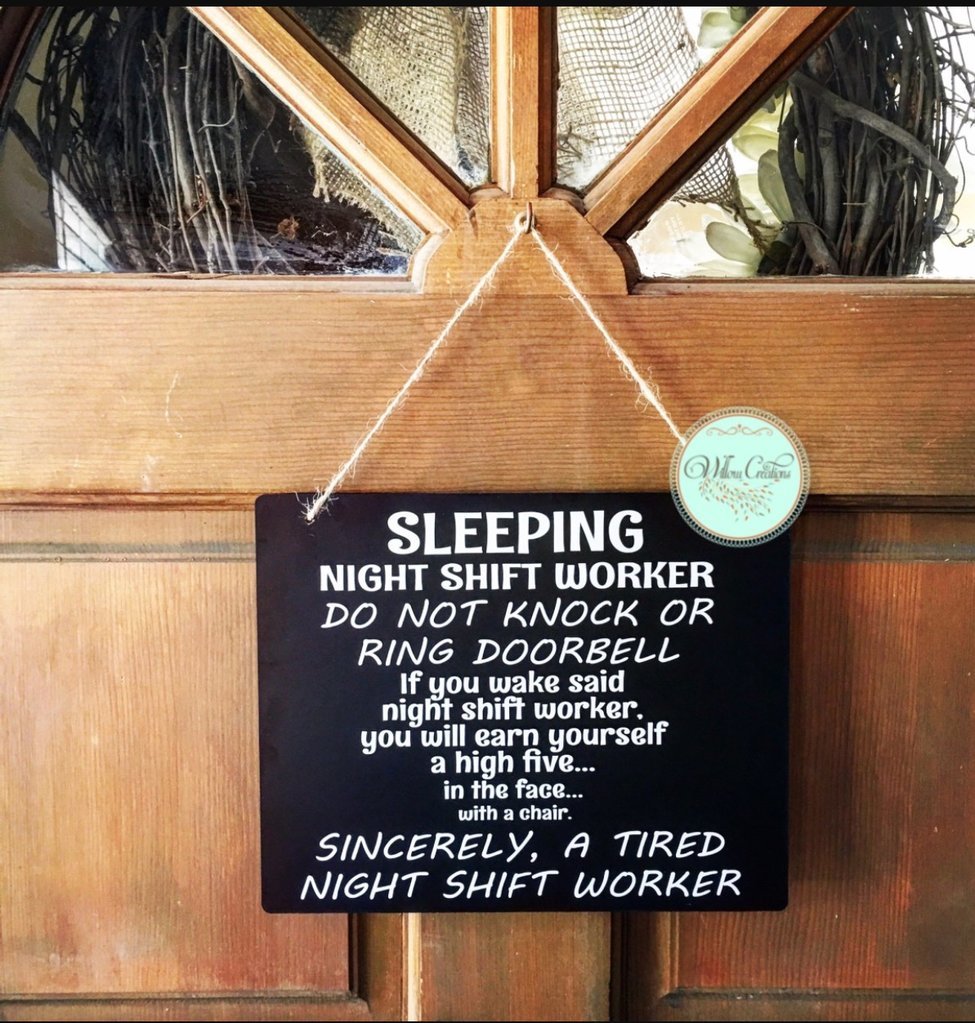 Willow Creations
SLEEPING
NIGHT SHIFT WORKER
DO NOT KNOCK OR
RING DOORBELL
If you wake said
night shift worker,
you will earn yourself
a high five...
in the face...
with a chair.
SINCERELY, A TIRED
NIGHT SHIFT WORKER